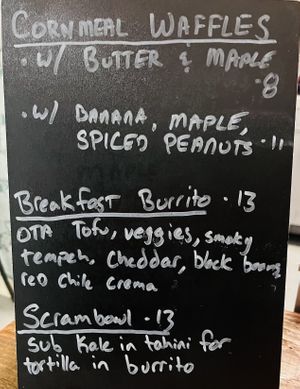 CORNMEAL WAFFLES
· W/ BUTTER & MAPLE
· 8
· W/ BANANA, MAPLE,
SPICED PEANUTS · 11
Breakfast Burrito · 13
OTA Tofu, veggies, smoky
tempeh, Cheddar, black beans,
red chile crema
Scrambowl · 13
sub kale in tahini for
tortilla in burrito